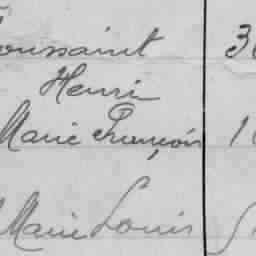 Toussaint 30
Henri
Marie François 1
Marie Louis